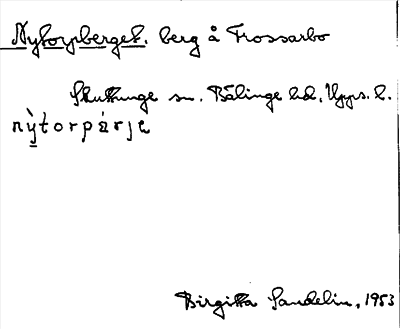 Nytorpberget. berg å Frossarbo
Skuttunge sn. Bälinge hd. Upps. l.
nỳtorpárje
Birgitta Sandelin, 1953